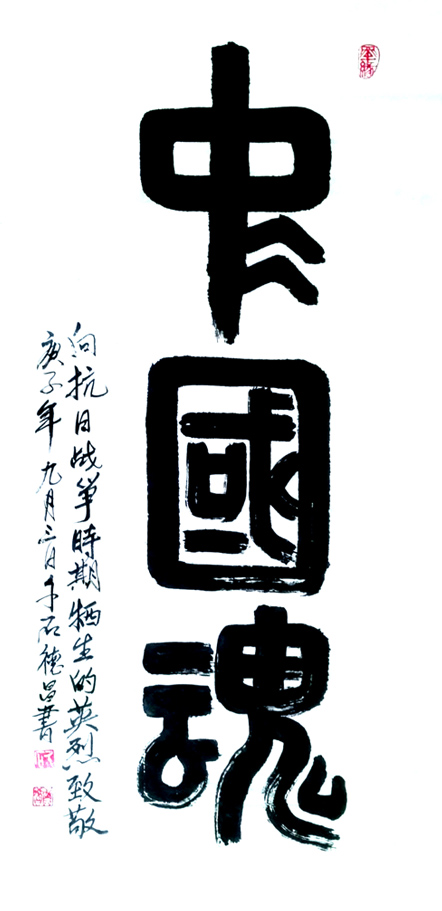 中國魂
向抗日战爭時期牺生的英烈致敬
庚子年九月三日石德昌書